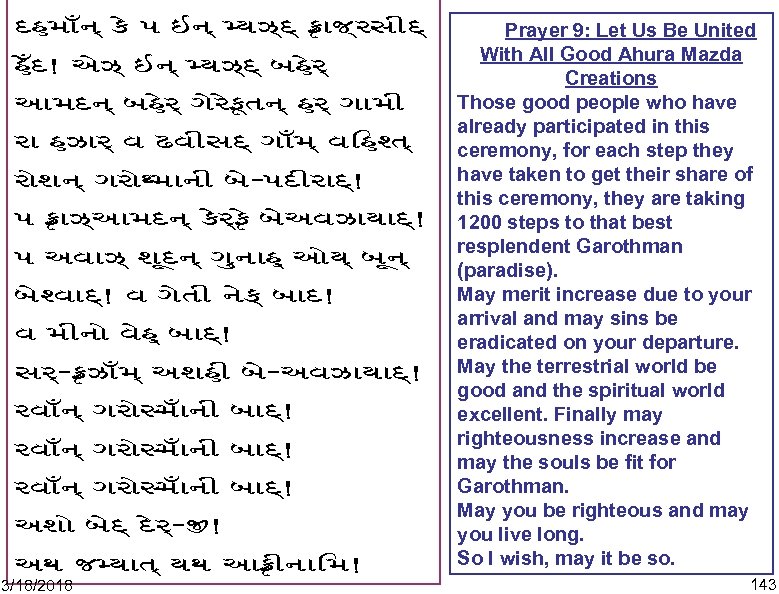 દહુમાઁન્ કે પ ઈન્ મ્યઝ્દ્ ફ્રાજ્રસીદ્
હેઁદ! એઝ્ ઈન્ મ્યઝ્દ્ બહેર્
આમદન્ બહેર્ ગેરેફ્તન્ હર્ ગામી
રા હઝાર્ વ દવીસદ્ ગાઁમ્ વહિશ્ત્
રોશન્ ગરોથ્માની બે-પદીરાદ્!
પ ફ્રાઝ્આમદન્ કેર્ફે બેઅવઝાયાદ્!
પ અવાઝ્ શૂદન્ ગુનાહ્ ઓય્ બૂન્
બેશ્વાદ્! વ ગેતી નેક્ બાદ!
વ મીનો વેહ્ બાદ્!
સર્-ફ્રઝાઁમ્ અશહી બે-અવઝાયાદ્!
રવાઁન્ ગરોસ્માઁની બાદ્!
રવાઁન્ ગરોસ્માઁની બાદ્!
રવાઁન્ ગરોસ્માઁની બાદ્!
અશો બેદ્ દેર્-જી!
અથ જમ્યાત્ યથ આફ્રીનામિ!
3/18/2018
Prayer 9: Let Us Be United
With All Good Ahura Mazda
Creations
Those good people who have
already participated in this
ceremony, for each step they
have taken to get their share of
this ceremony, they are taking
1200 steps to that best
resplendent Garothman
(paradise).
May merit increase due to your
arrival and may sins be
eradicated on your departure.
May the terrestrial world be
good and the spiritual world
excellent. Finally may
righteousness increase and
may the souls be fit for
Garothman.
May you be righteous and may
you live long.
So I wish, may it be so.
143